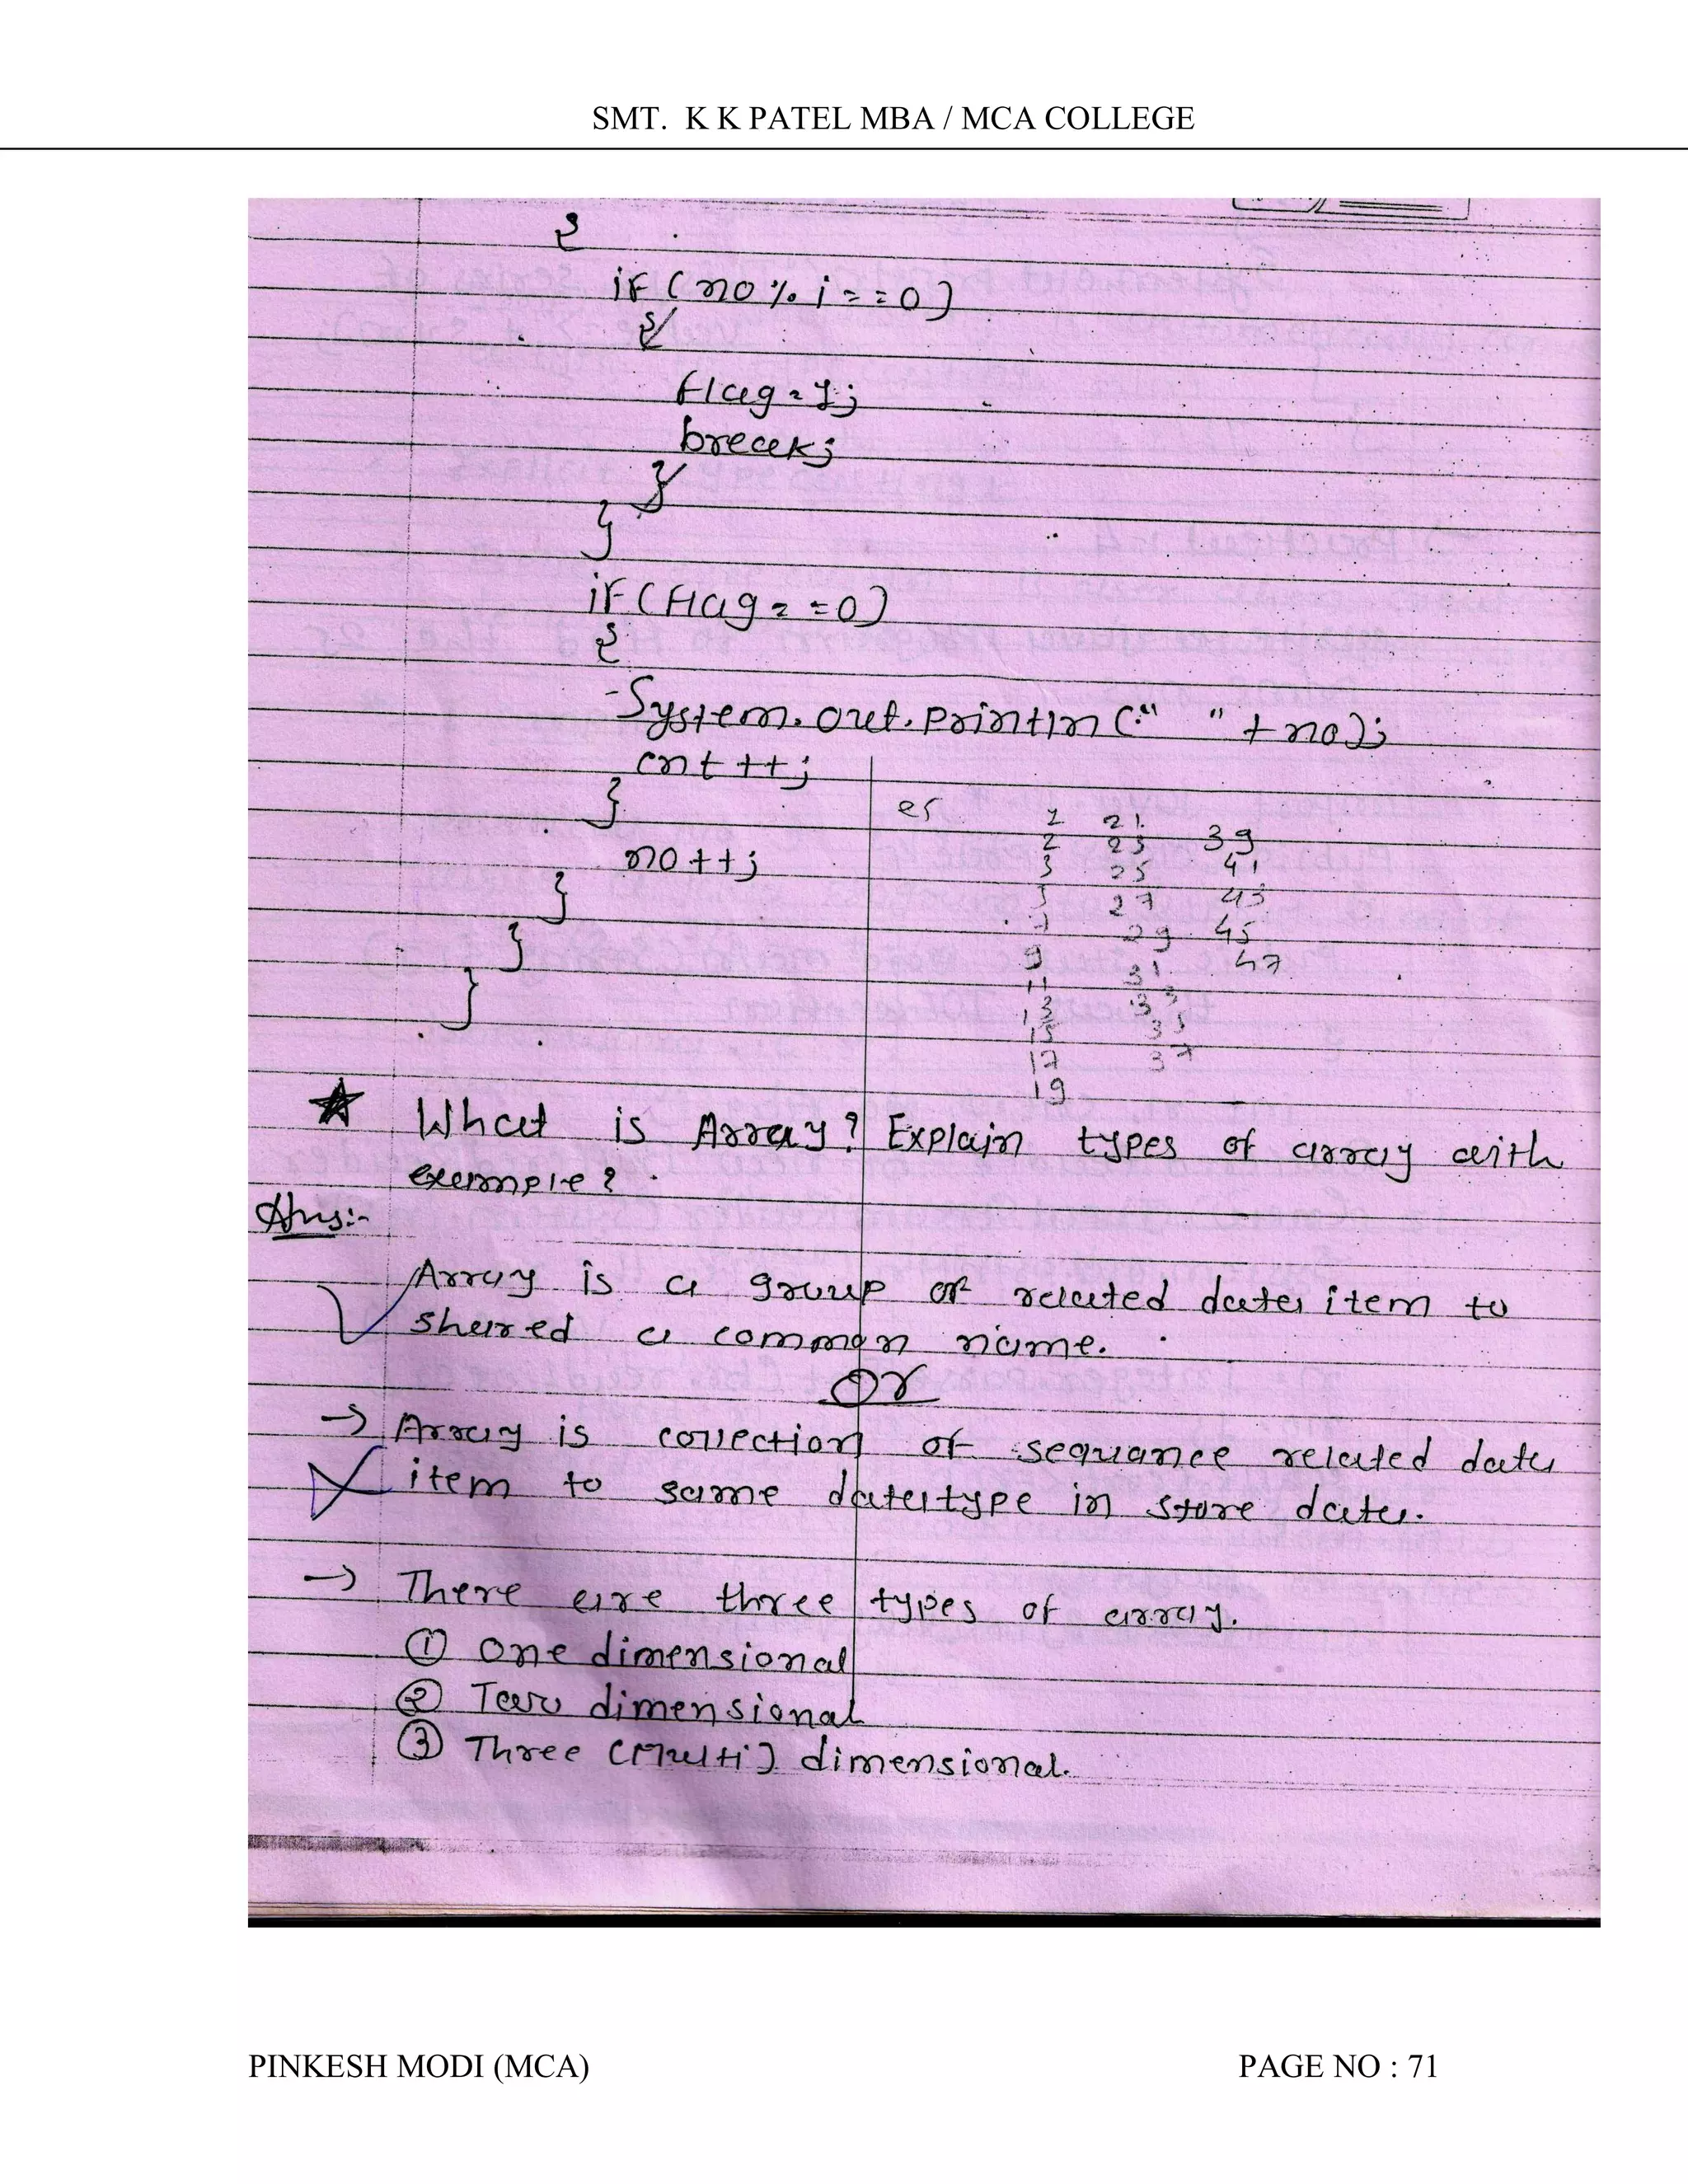 SMT. K K PATEL MBA / MCA COLLEGE
{
if (no % i == 0)
{
flag = 1;
break;
}
}
if (flag == 0)
{
System.out.println (" " + no);
cnt ++;
}
no++;
}
}
}
1 21 39
2 23 41
3 25 43
5 27 45
7 29 47
9 31
11 33
13 35
15 37
17
19
★ What is Array? Explain types of array with
example?
Ans:-
Array is a group of related data item to
shared a common name.
Or
→ Array is collection of sequance related data
item to same datatype in store data.
→ There are three types of array.
① One dimensional
② Two dimensional
③ Three (Multi) dimensional.
PINKESH MODI (MCA) PAGE NO : 71